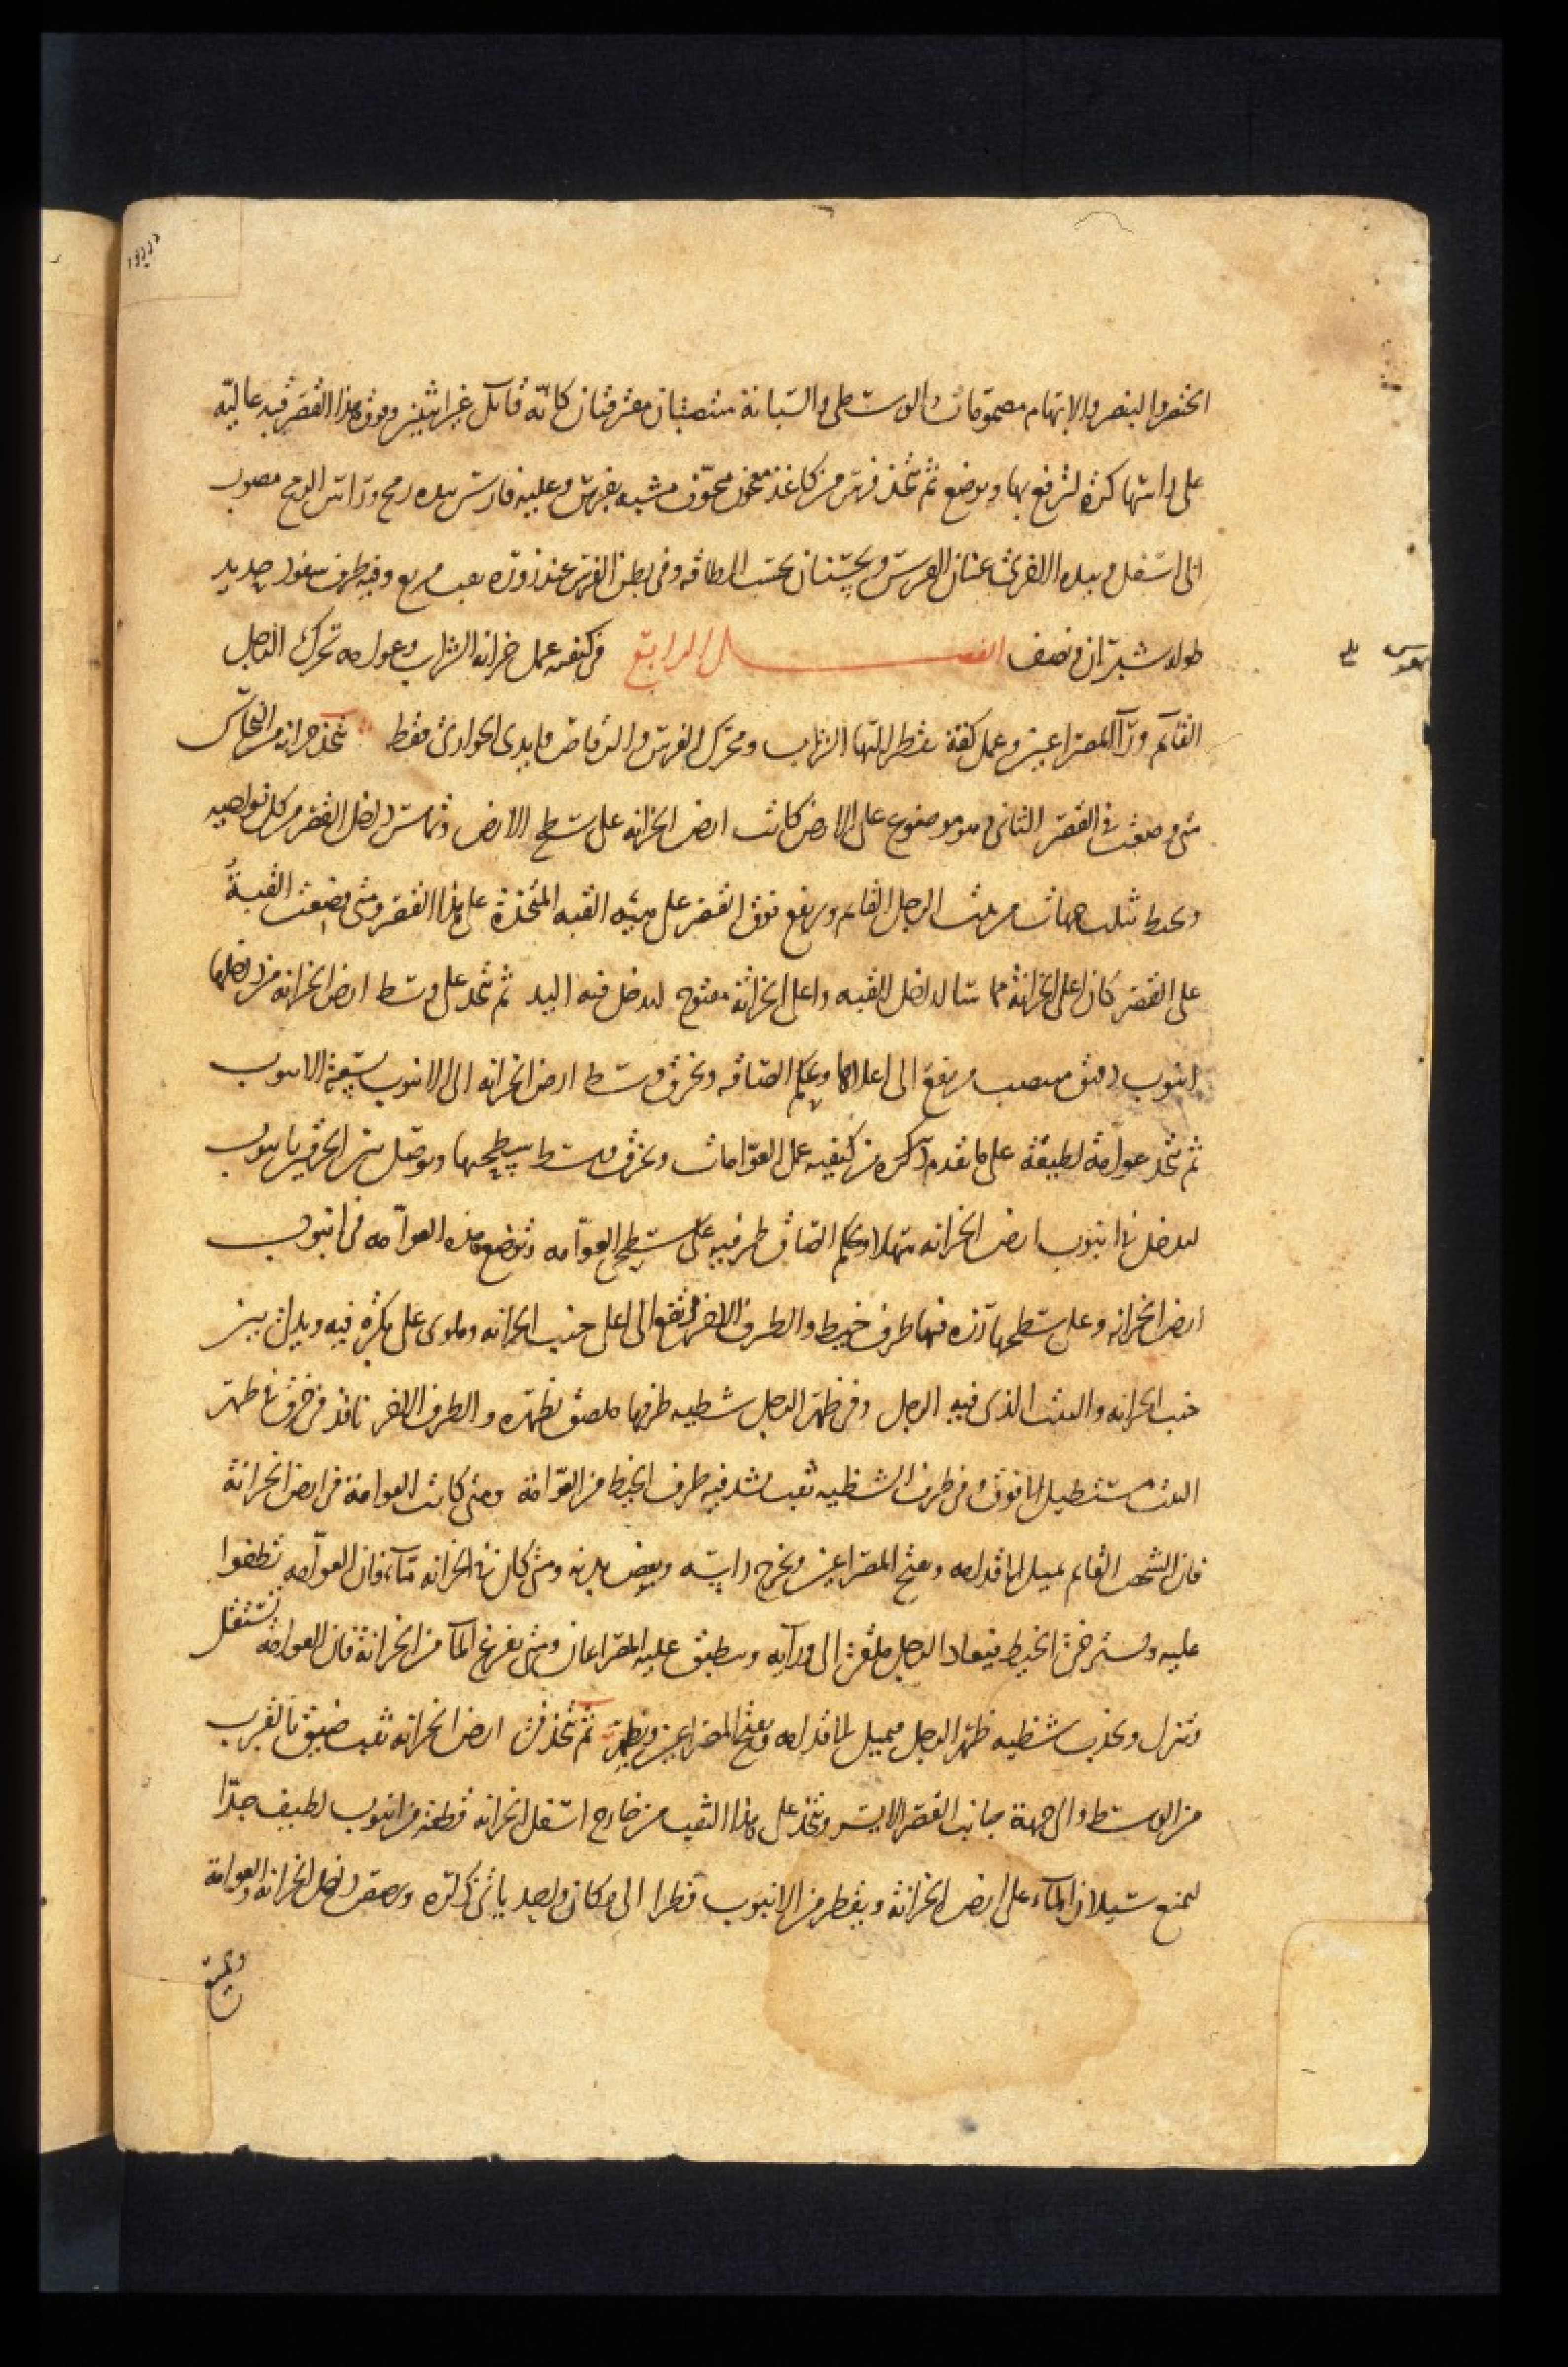 الخنصر والبنصر والابهام مضمومات والوسطى والسبابة منتصبتان مفترقتان كانه قائل غير اثنين وفوق هذا القصر قبه عاليه
على راسها كرة لترفع بها وتوضع ثم تتخذ فرس من كاغذ معجون مجوف مشبه بفرس وعليه فارس بيده رمح وراس الرمح مصوب
الى اسفل وبيده الاخرى عنان الفرس ويحسنان بحسب الطاقه وفى بطن الفرس عند زوره ثقب مربع وفيه طرف سفود حديد
طوله شبران ونصف الفصـــل الرابع فى كيفيه عمل خزانه الشراب وعوامه تحرك الرجل
القائم ورآ المصراعين وعمل كفة يقطر اليها الشراب ومحرك الفرس والرقاص وايدى الجوارى فقط تتخذ خزانه من النحاس
متى وضعت فى القصر الثانى وهو موضوع على الارض كانت ارض الخزانه على سطح الارض وتماس داخل القصر من كل نواحيه
وتحيط بثلث جهات من بيت الرجل القايم وترتفع فوق القصر على هيئه القبه المتخذة على هذا القصر ومتى وضعت القبةُ
على القصر كان اعلى الخزانة مماسا لداخل القبه واعلى الخزانة مفتوح ليدخل فيه اليد ثم تتخذ على وسط ارض الخزانه من داخلها
انبوب دقيق منتصب مرتفع الى اعلاها ويحكم الصاقه ويخرق وسط ارض الخزانه الى الانبوب بسعة الانبوب
ثم تتخذ عوامة لطيفة على ما تقدم ذكره من كيفيه عمل العوامات ويخرق وسط سطحيها ويوصل بين الخرقين بانبوب
ليدخل فى انبوب ارض الخزانه سهلا ويحكم الصاق طرفيه على سطحى العوامه وتوضع هذه العوامه فى انبوب
ارض الخزانه وعلى سطحها رزه فيها طرف خيط والطرف الاخر يرتفع الى اعلى جنب الخزانه ويلوى على بكرة فيه ويدلى بين
جنب الخزانه والبيت الذى فيه الرجل وفى ظهر الرجل شظيه طرفها ملصق بظهره والطرف الاخر نافذ فى خرق فى ظهر
البيت مستطيل الى فوق وفى طرف الشظيه ثقب يشد فيه طرف الخيط من العوامة ومتى كانت العوامة فى ارض الخزانة
فان الشخص القايم يميل الى قدامه ويفتح المصراعين ويخرج راسه وبعض بدنه ومتى كان فى الخزانه مآء فان العوامه تطفوا
عليه ويسترخى الخيط فيعاد الرجل ملقى الى ورآيه وينطبق عليه المصراعان ومتى يفرغ المآ من الخزانة فان العوامة تستفل
وتنزل وتجذب شظيه ظهر الرجل فيميل الى قدامه ويفتح المصراعين ويظهر ثم تتخذ فى ارض الخزانه ثقب ضيق بالقرب
من الوسط والى جهة جانب القصر الايسر ويتخذ على هذا الثقب من خارج اسفل الخزانه قطعة من انبوب لطيف جدّا
ليمنع سيلان المآء على ارض الخزانة ويقطر من الانبوب قطرا الى مكان واحد ياتى ذكره ويصقل داخل الخزانه والعوامة